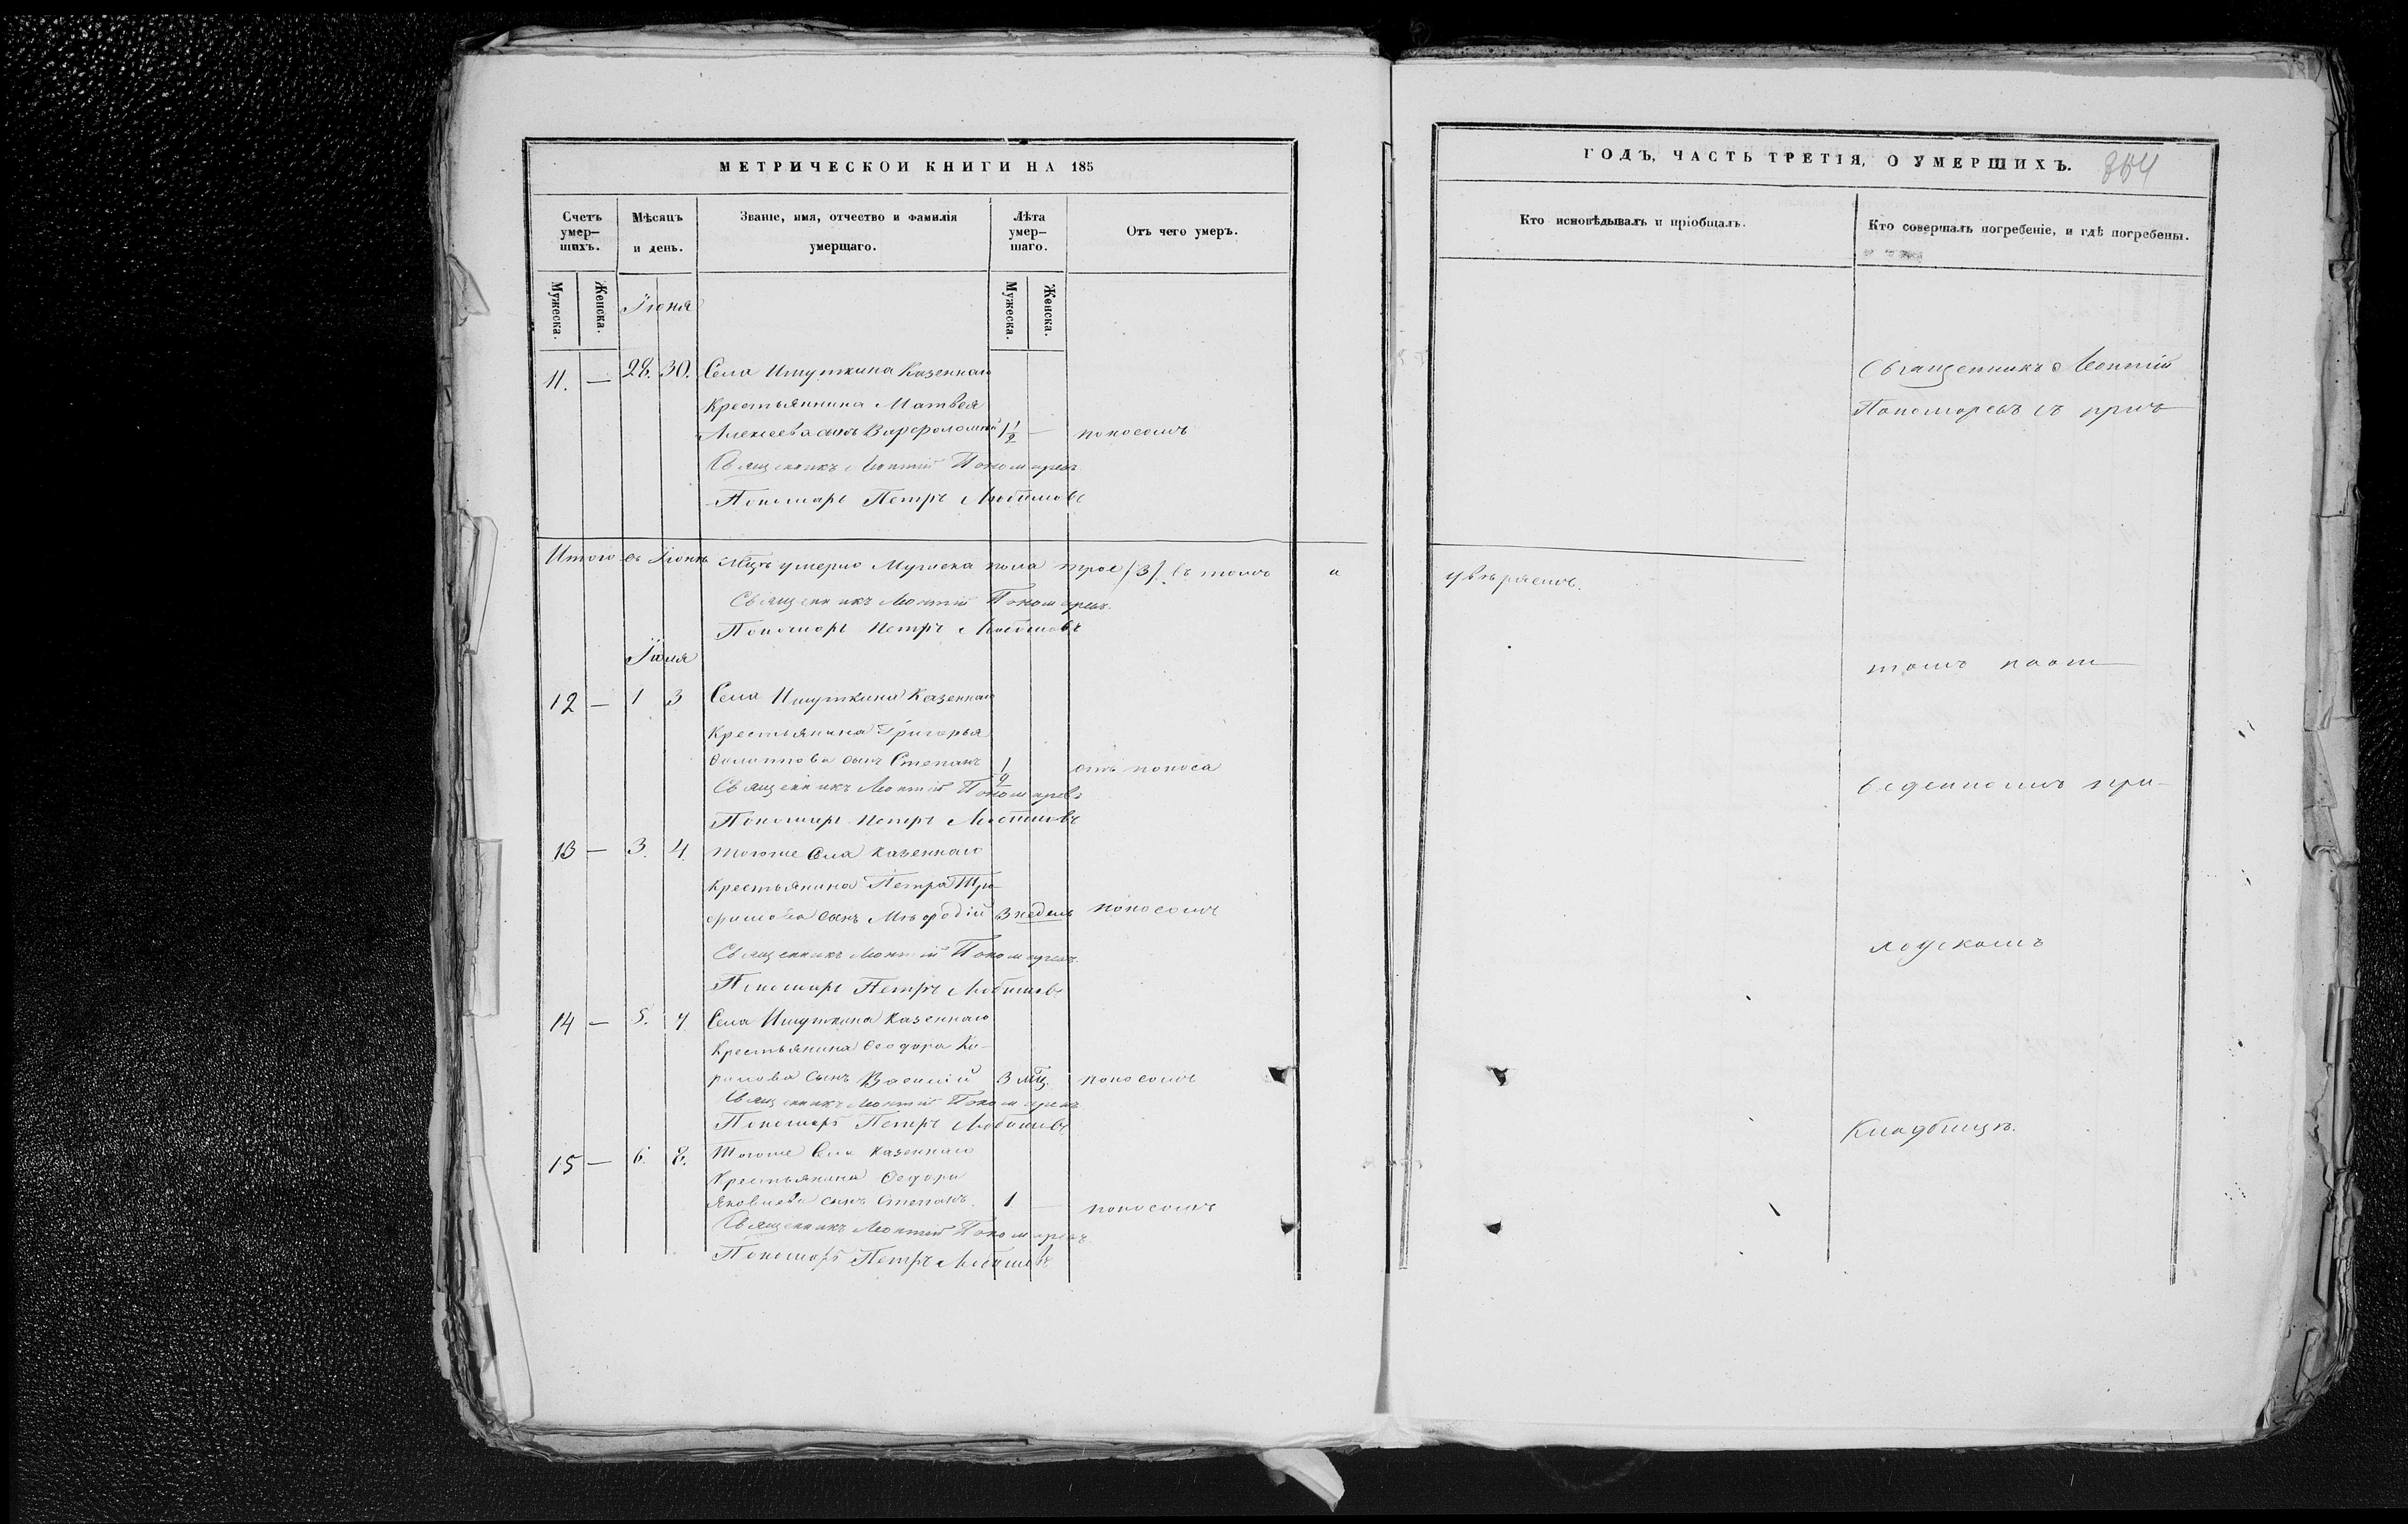 МЕТРИЧЕСКОЙ КНИГИ НА 185
Счетъ умер-
шихъ.
Мѣсяцъ
и день.
Званіе, имя, отчество и фамилія
умершаго.
Лѣта
умер-
шаго.
Отъ чего умеръ.
Мужеска.
Женска.
Мужеска.
Женска.
Іюня
11. — 28. 30. Села Ишуткина Казеннаго
Крестьянина Матвея
Алексеева сынъ Варфоломей 1 1/2 — поносомъ
Священникъ Леонтій Пономаревъ
Пономарь Петръ Любимовъ
Итого въ Іюнѣ Мцѣ умерло Мужеска пола трое /3/. въ томъ и
Священникъ Леонтій Пономаревъ.
Пономарь Петръ Любимовъ
Іюля
12 — 1 3 Села Ишуткина Казеннаго
Крестьянина Григорья
сынъ Степанъ 1/2 отъ поноса
Священникъ Леонтій Пономаревъ
Пономарь Петръ Любимовъ
13 — 3. 4. Тогоже Села Казеннаго
Крестьянина Петра Тро-
фимова сынъ Меѳодій 3 недель поносомъ
Священникъ Леонтій Пономаревъ.
Пономарь Петръ Любимовъ
14 — 5. 7. Села Ишуткина Казеннаго
Крестьянина Ѳеодора Ки-
рилова сынъ Василій 3 мц. поносомъ
Священникъ Леонтій Пономаревъ
Пономарь Петръ Любимовъ
15 — 6. 8. Тогоже Села Казеннаго
Крестьянина Ѳедора
Яковлева сынъ Степанъ. 1 — поносомъ
Священникъ Леонтій Пономаревъ.
Пономарь Петръ Любимовъ
ГОДЪ, ЧАСТЬ ТРЕТІЯ, О УМЕРШИХЪ.
Кто исповѣдывалъ и пріобщалъ.
Кто совершалъ погребеніе, и гдѣ погребены.
Священникъ Леонтій
Пономаревъ съ прич
увѣряемъ.
томъ на от
веденномъ при-
ходскомъ
Кладбищѣ.